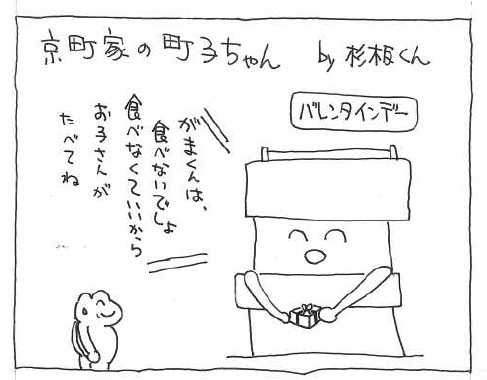 京町家の町子ちゃん by 杉板くん
バレンタインデー
がまくんは、
食べないでしょ
食べなくていいから
お子さんが
たべてね